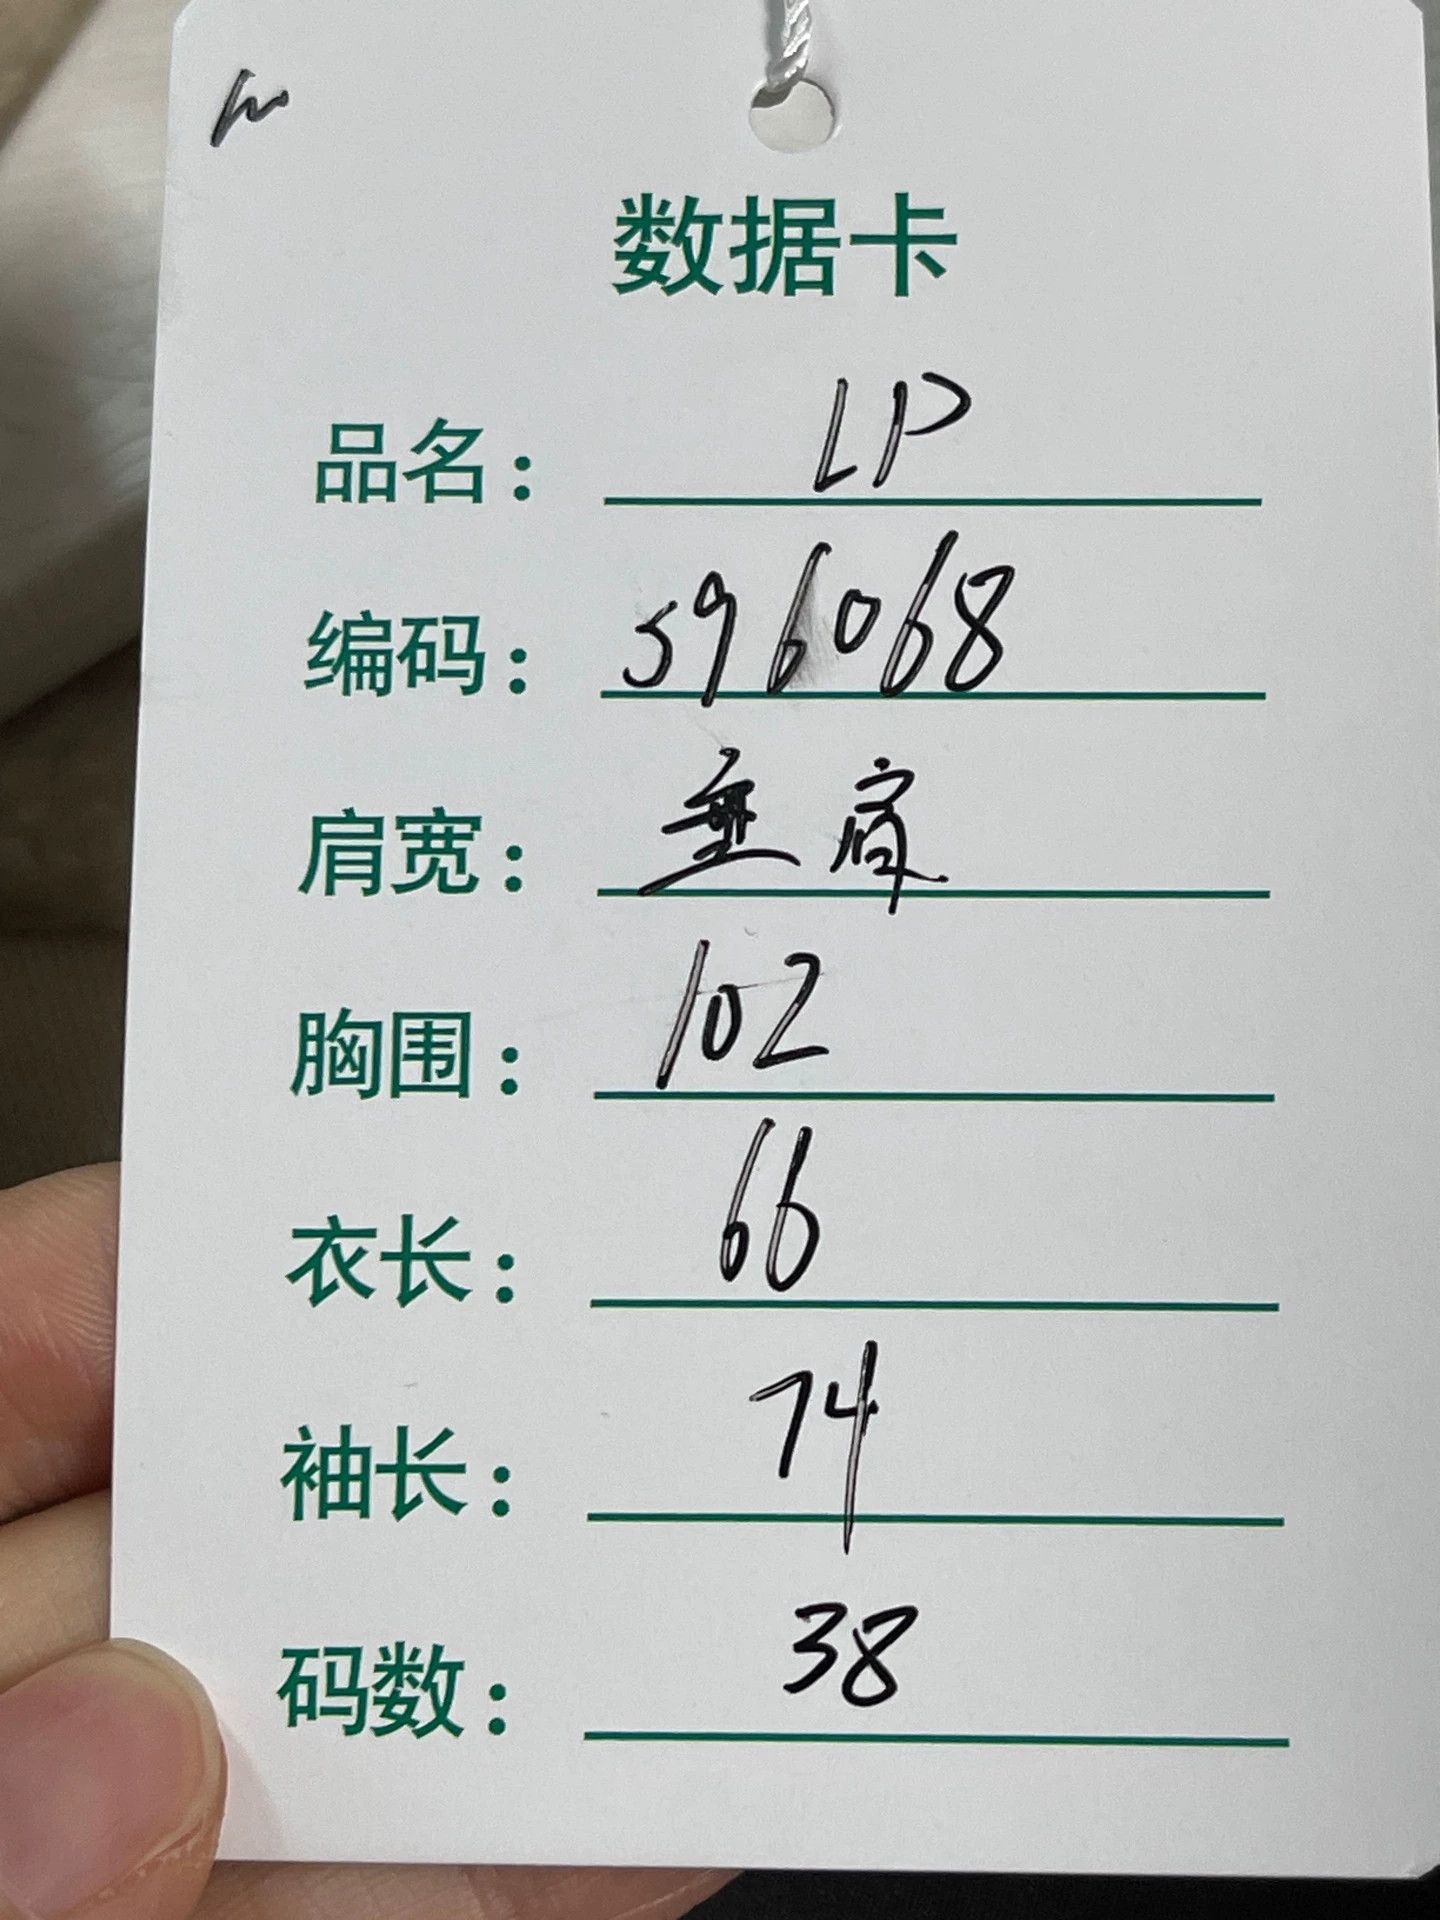 数据卡
品名：LP
编码：596068
肩宽：垂肩
胸围：102
衣长：66
袖长：74
码数：38